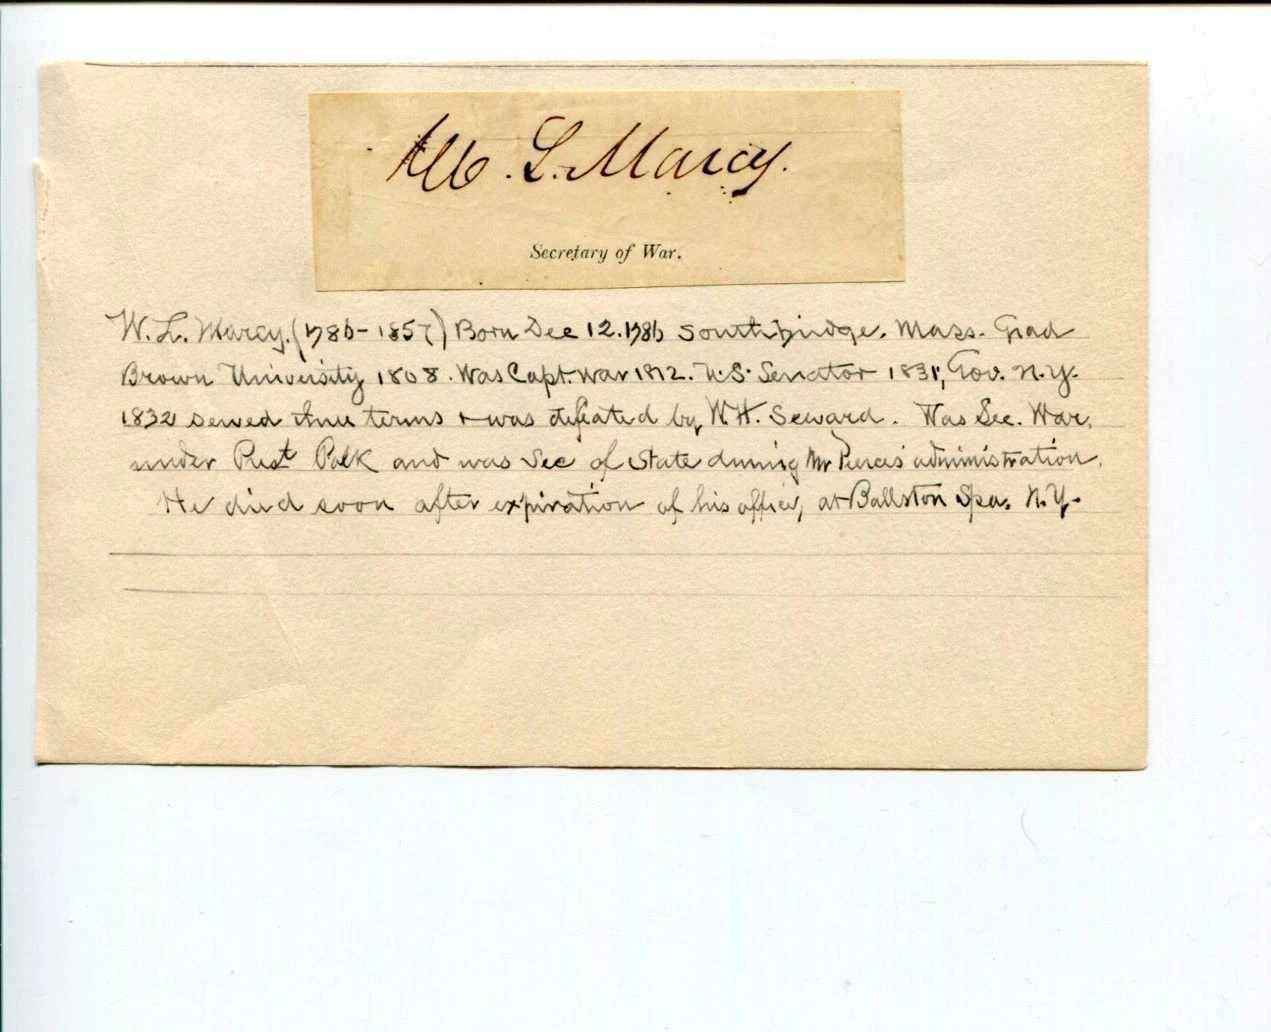 W. L. Marcy.
Secretary of War.
W. L. Marcy. (1786-1857) Born Dec 12. 1786 Southbridge. Mass. Grad
Brown University 1808. Was Capt. War 1812. U.S. Senator 1831, Gov. N.Y.
1832 served three terms + was defeated by W.H. Seward. Was Sec. War,
under Pust Polk and was Sec of State during Mr Pierces' administration.
He died soon after expiration of his office, at Ballston Spa. N.Y.